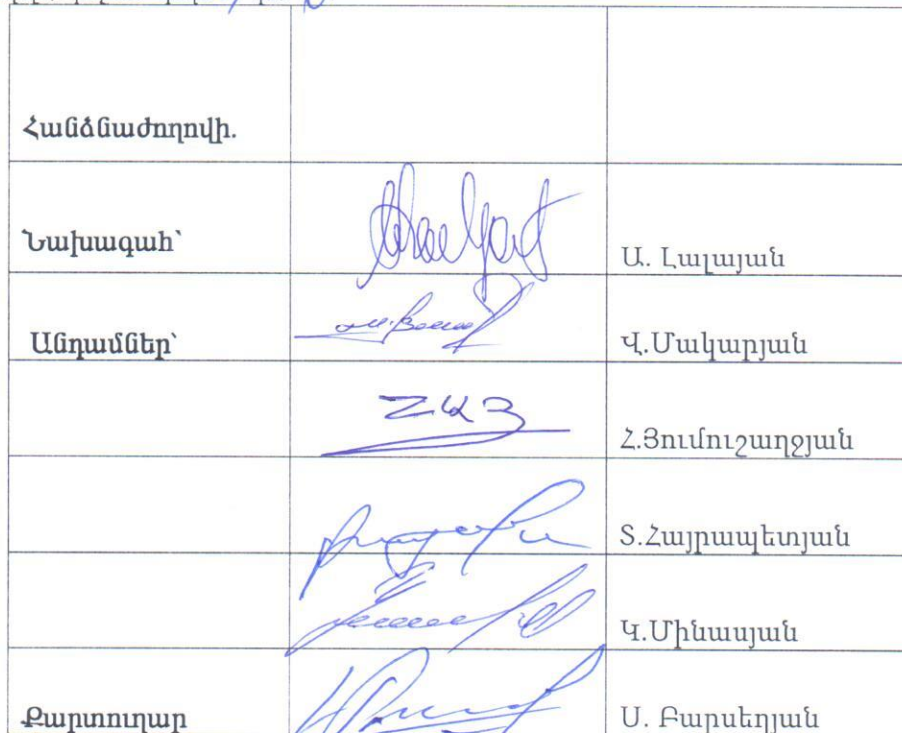 Հանձնաժողովի.
Նախագահ՝ Ա. Լալայան
Անդամներ՝ Վ.Մակարյան
ՀԱՅ Հ.Յումուշաղջյան
Տ.Հայրապետյան
Կ.Մինասյան
Քարտուղար Ս. Բարսեղյան